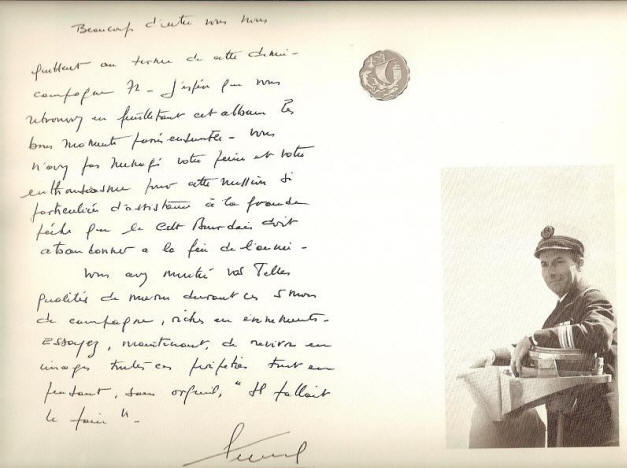 Beaucoup d'entre vous nous
quittent au terme de cette demi-
campagne 72 - J'espère que vous
retrouvez en feuilletant cet album les
bons moments passés ensemble - Vous
n'avez pas ménagé votre peine et votre
enthousiasme pour cette mission si
particulière d'assistance à la grande
pêche que le Cdt Bourdais doit
abandonner à la fin de l'année -
Vous avez montré vos
qualités de marin durant ces 5 mois
de campagne, riches en événements -
Essayez, maintenant, de revivre en
images toutes ces péripéties tout en
pensant, sans orgueil, "Il fallait
le faire".